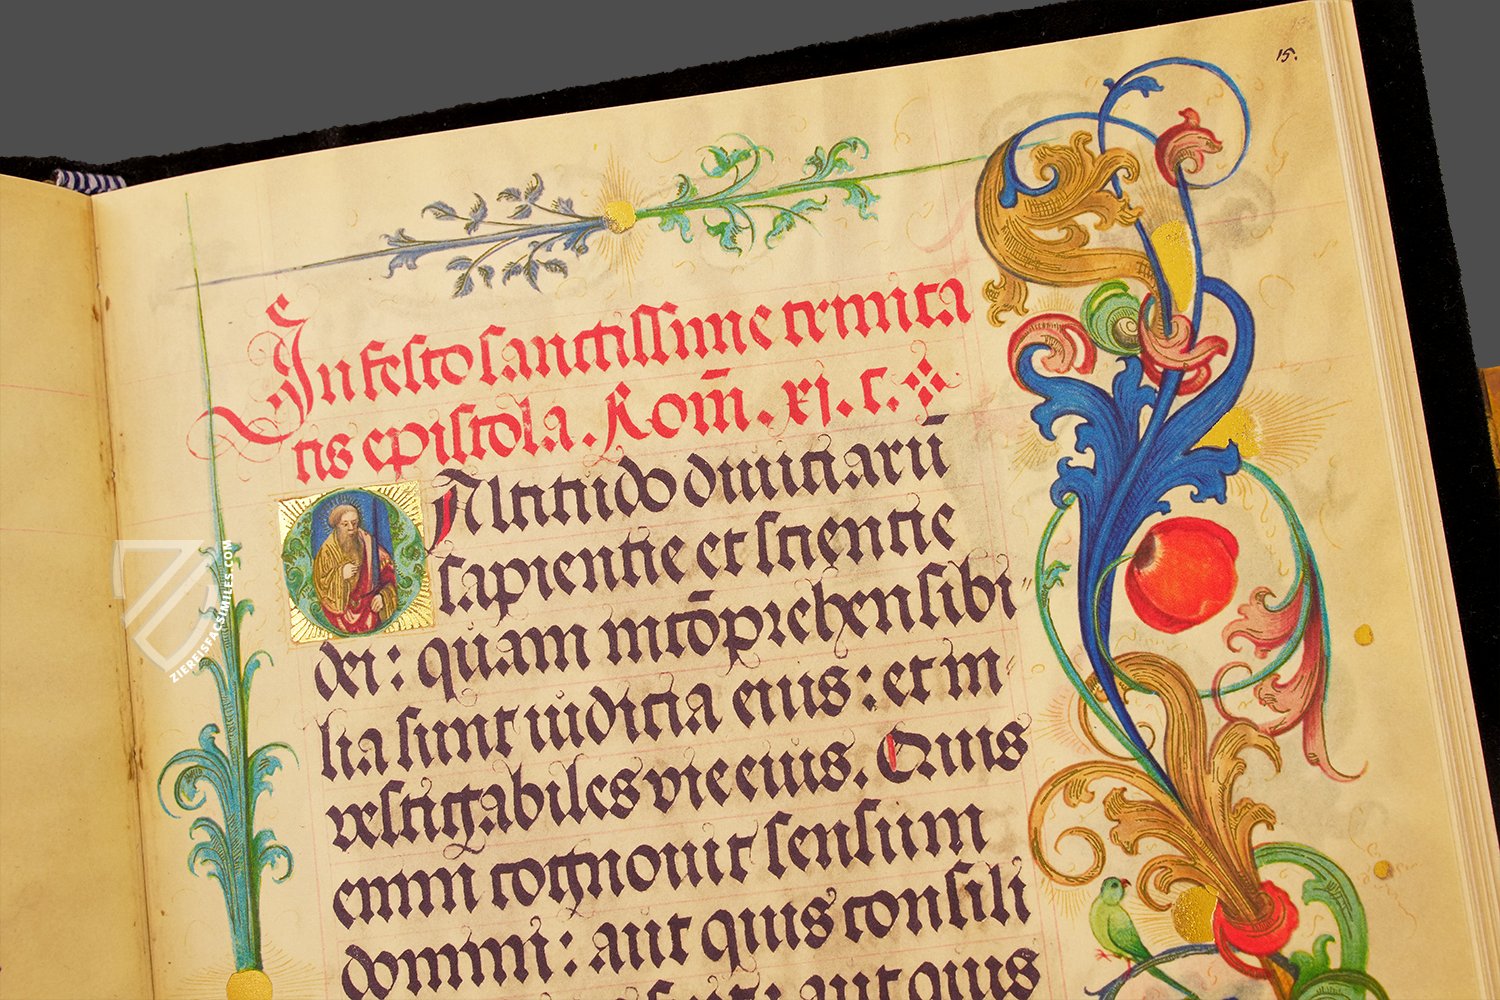 15.
In festo sanctissime trinita
tis epistola. Rom̄. xj. c.
O Altitudo diuiciarū
sapientie et scientie
dei: quam incōprehensibi
lia sunt iudicia eius: et in
vestigabiles vie eius. Quis
enim cognouit sensum
domini: aut quis consili
aut quis
ZIEREISFACSIMILES.COM